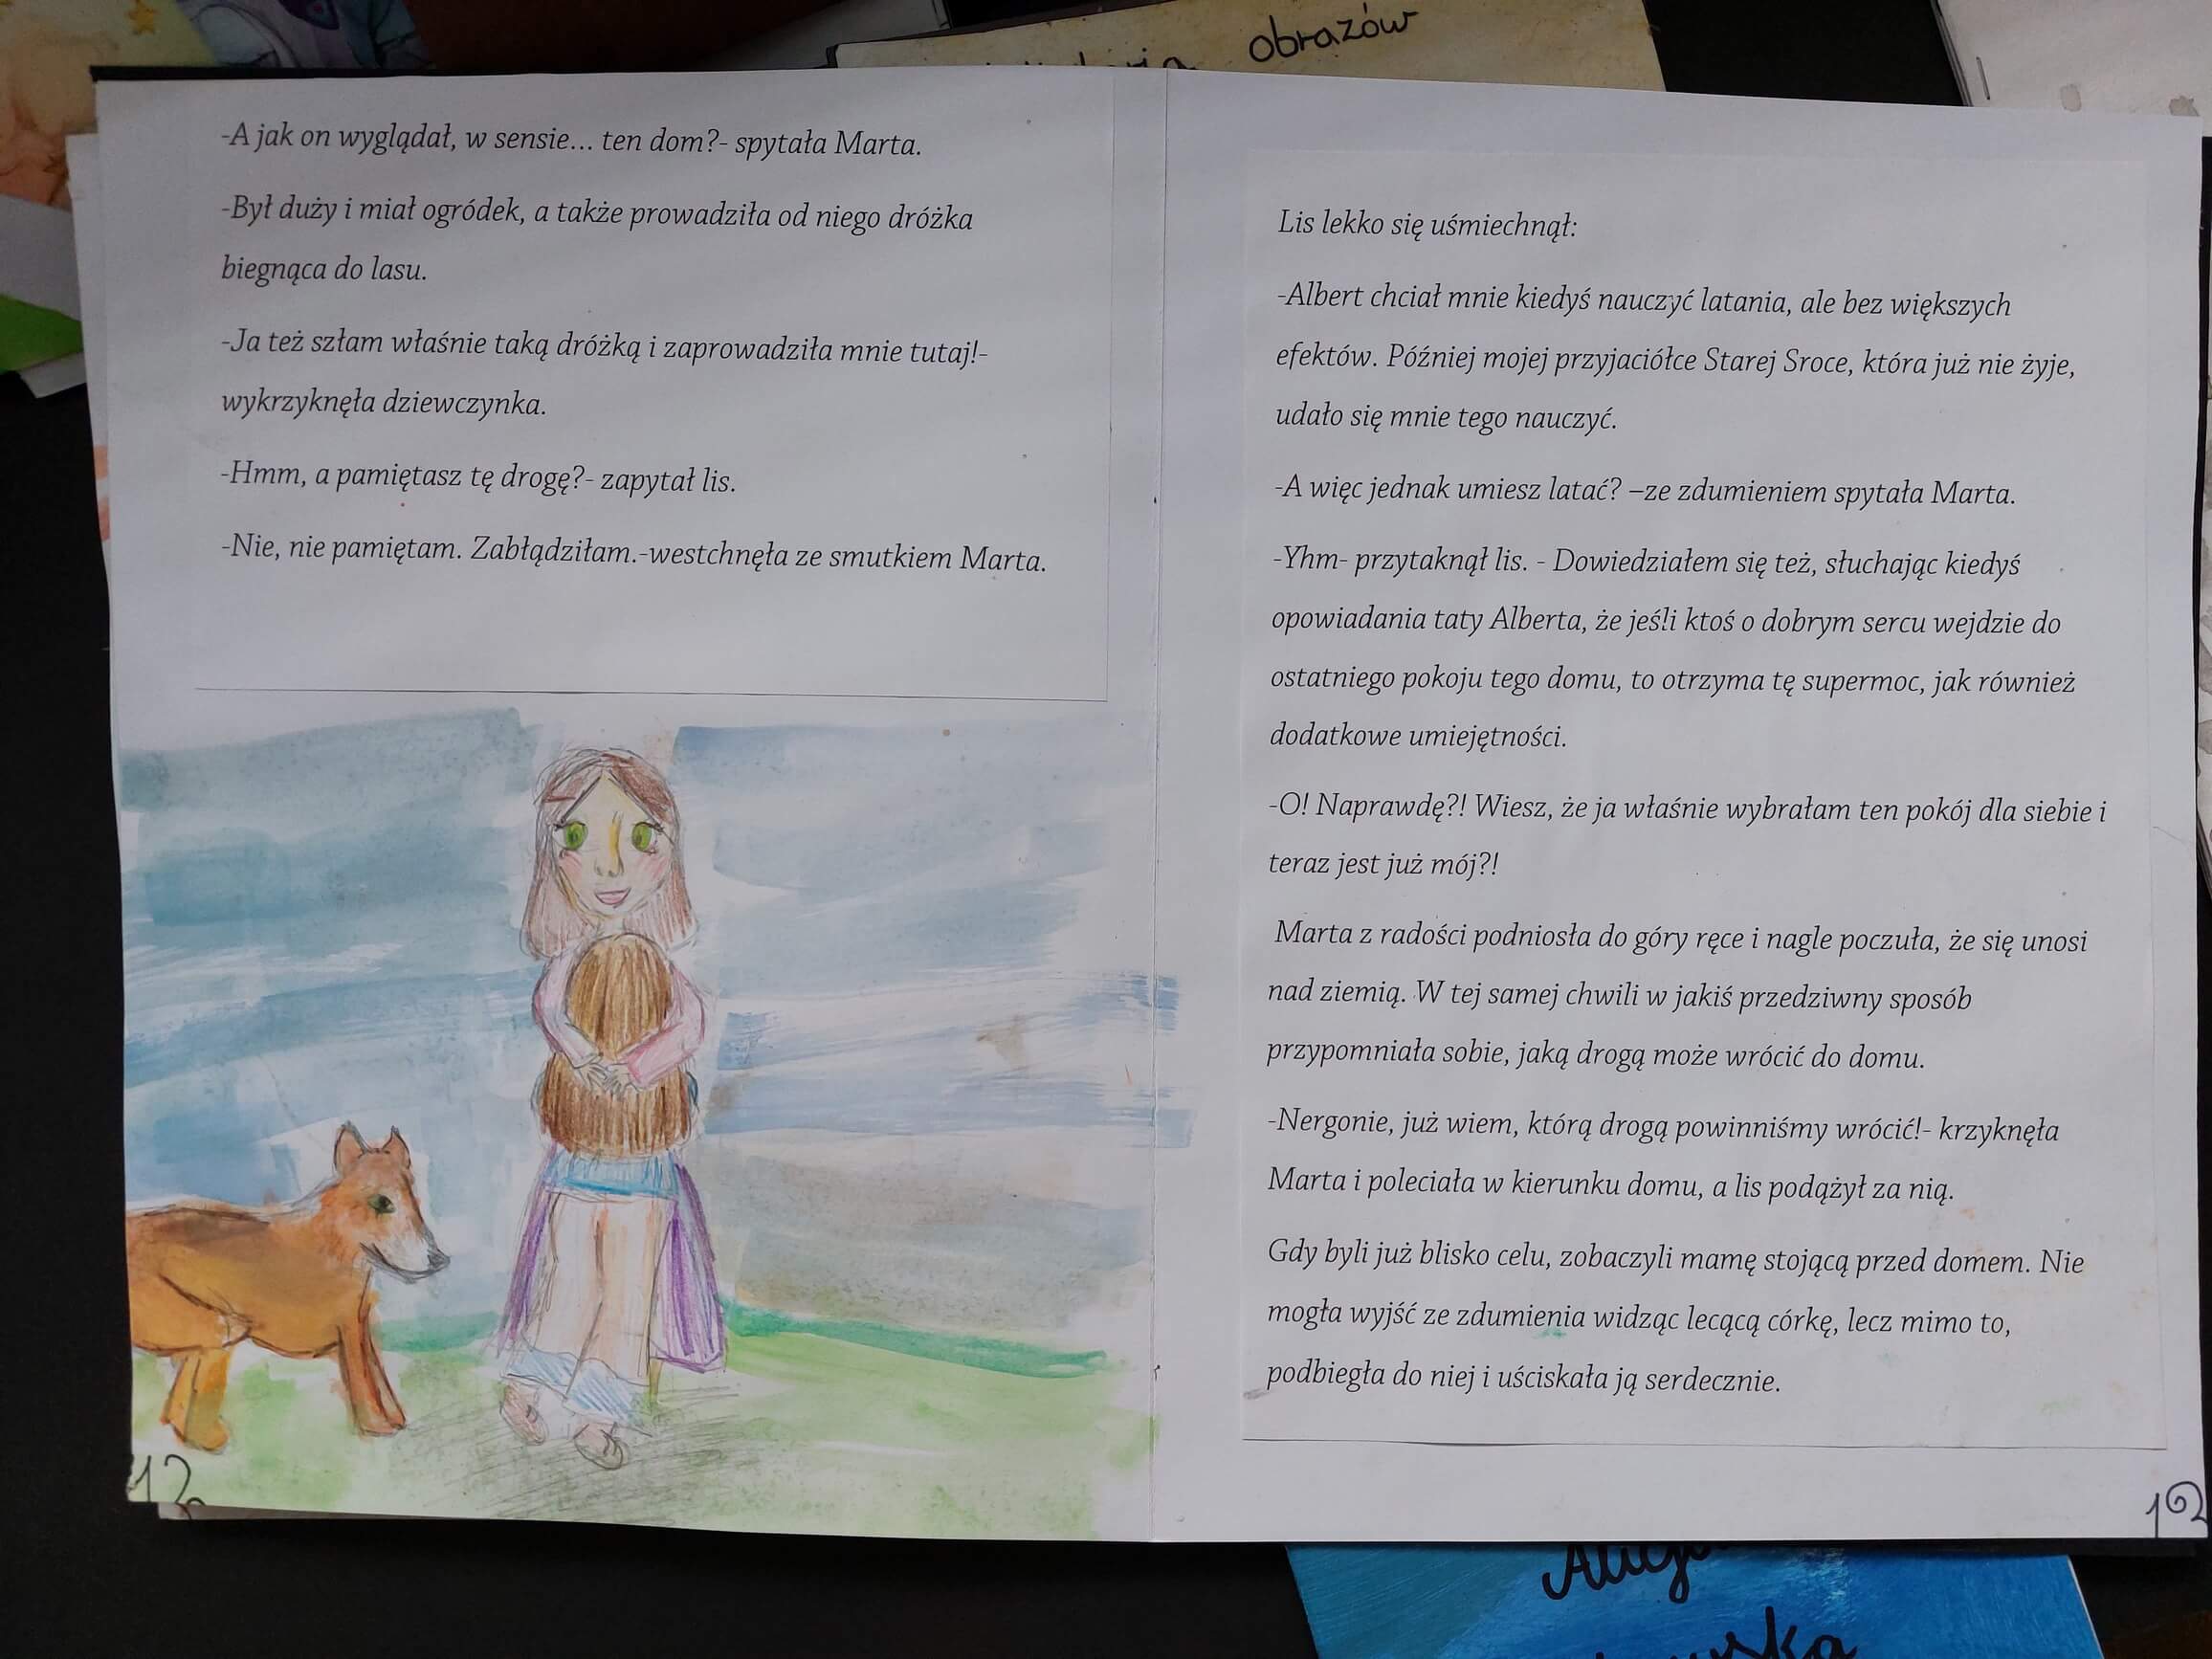 obrazów
-A jak on wyglądał, w sensie... ten dom?- spytała Marta.
-Był duży i miał ogródek, a także prowadziła od niego dróżka
biegnąca do lasu.
-Ja też szłam właśnie taką dróżką i zaprowadziła mnie tutaj!-
wykrzyknęła dziewczynka.
-Hmm, a pamiętasz tę drogę?- zapytał lis.
-Nie, nie pamiętam. Zabłądziłam.-westchnęła ze smutkiem Marta.
12
Lis lekko się uśmiechnął:
-Albert chciał mnie kiedyś nauczyć latania, ale bez większych
efektów. Później mojej przyjaciółce Starej Sroce, która już nie żyje,
udało się mnie tego nauczyć.
-A więc jednak umiesz latać? –ze zdumieniem spytała Marta.
-Yhm- przytaknął lis. - Dowiedziałem się też, słuchając kiedyś
opowiadania taty Alberta, że jeśli ktoś o dobrym sercu wejdzie do
ostatniego pokoju tego domu, to otrzyma tę supermoc, jak również
dodatkowe umiejętności.
-O! Naprawdę?! Wiesz, że ja właśnie wybrałam ten pokój dla siebie i
teraz jest już mój?!
Marta z radości podniosła do góry ręce i nagle poczuła, że się unosi
nad ziemią. W tej samej chwili w jakiś przedziwny sposób
przypomniała sobie, jaką drogą może wrócić do domu.
-Nergonie, już wiem, którą drogą powinniśmy wrócić!- krzyknęła
Marta i poleciała w kierunku domu, a lis podążył za nią.
Gdy byli już blisko celu, zobaczyli mamę stojącą przed domem. Nie
mogła wyjść ze zdumienia widząc lecącą córkę, lecz mimo to,
podbiegła do niej i uściskała ją serdecznie.